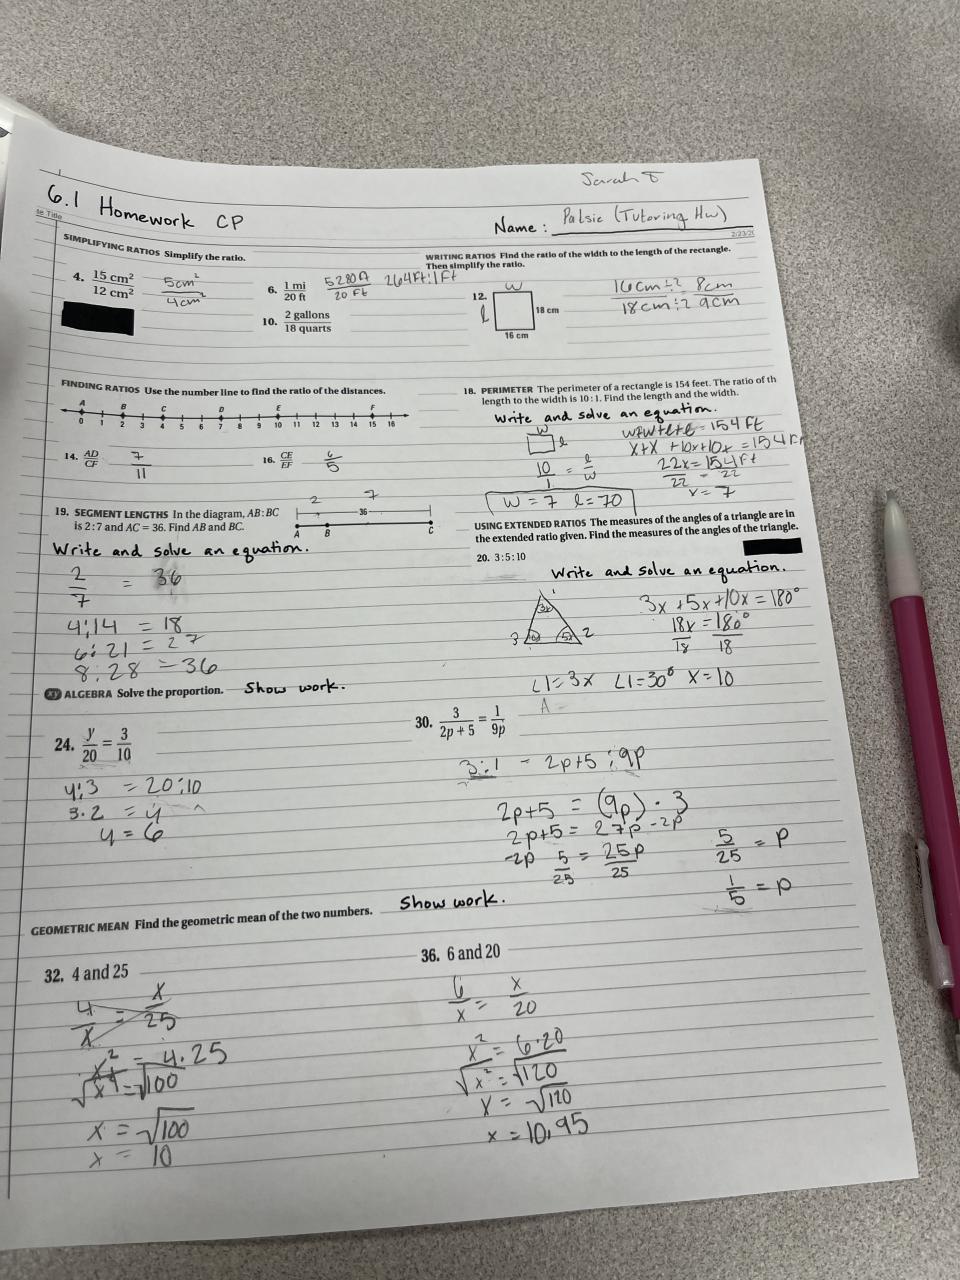 Sarah T
6.1 Homework CP
Name: Palsie (Tutoring Hw)
se Title
2/23/2
SIMPLIFYING RATIOS Simplify the ratio.
4. 15 cm² / 12 cm²
5cm² / 4cm²
6. 1 mi / 20 ft
5280ft / 20 FT 264Ft:1Ft
10. 2 gallons / 18 quarts
WRITING RATIOS Find the ratio of the width to the length of the rectangle.
Then simplify the ratio.
12.
w
l
18 cm
16 cm
16cm÷2 8cm
18cm÷2 9cm
FINDING RATIOS Use the number line to find the ratio of the distances.
A B C D E F
0 1 2 3 4 5 6 7 8 9 10 11 12 13 14 15 16
14. AD/CF 7/11
16. CE/EF 6/5
18. PERIMETER The perimeter of a rectangle is 154 feet. The ratio of th
length to the width is 10:1. Find the length and the width.
Write and solve an equation.
w
l
w+w+l+l = 154 FT
x+x +10x+10x = 154 FT
22x = 154Ft
22 22
x = 7
10/1 = l/w
w = 7 l = 70
19. SEGMENT LENGTHS In the diagram, AB:BC
is 2:7 and AC = 36. Find AB and BC.
2 7
36
A B C
Write and solve an equation.
2/7 = 36
4:14 = 18
6:21 = 27
8:28 = 36
USING EXTENDED RATIOS The measures of the angles of a triangle are in
the extended ratio given. Find the measures of the angles of the triangle.
20. 3:5:10
Write and solve an equation.
1
3x
3 10x 5x 2
3x +5x+10x = 180°
18x = 180°
18 18
∠1 = 3x ∠1 = 30° x = 10
A =
xy ALGEBRA Solve the proportion. Show work.
24. y/20 = 3/10
y:3 = 20:10
3·2 = y
y = 6
30. 3/(2p + 5) = 1/9p
3:1 = 2p+5 : 9p
2p+5 = (9p) · 3
2p+5 = 27p -2p
-2p 5/25 = 25p/25
5/25 = p
1/5 = p
GEOMETRIC MEAN Find the geometric mean of the two numbers. Show work.
32. 4 and 25
4/x = x/25
x² = 4·25
√x² = √100
x = √100
x = 10
36. 6 and 20
6/x = x/20
x² = 6·20
√x² = √120
x = √120
x = 10.95